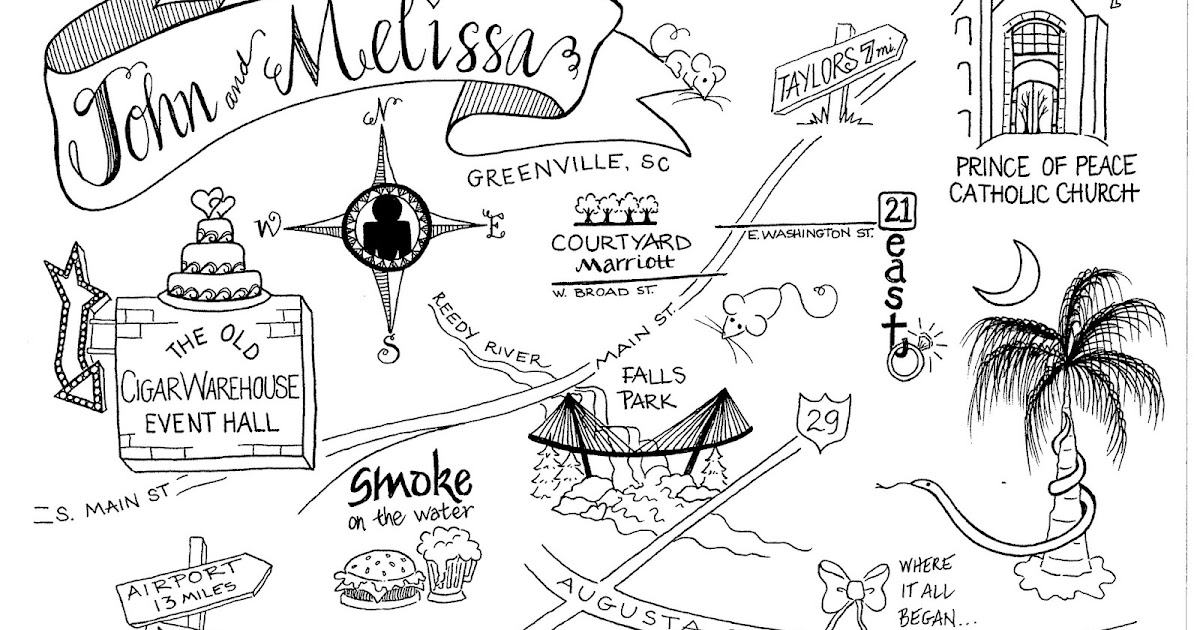 John and Melissa
N
W
E
S
GREENVILLE, SC
TAYLORS 7 mi.
PRINCE OF PEACE
CATHOLIC CHURCH
COURTYARD
Marriott
E. WASHINGTON ST.
21
east
W. BROAD ST.
REEDY RIVER
MAIN ST.
THE OLD
CIGAR WAREHOUSE
EVENT HALL
FALLS
PARK
29
S. MAIN ST
Smoke
on the water
AIRPORT
13 MILES
AUGUSTA
WHERE
IT ALL
BEGAN...